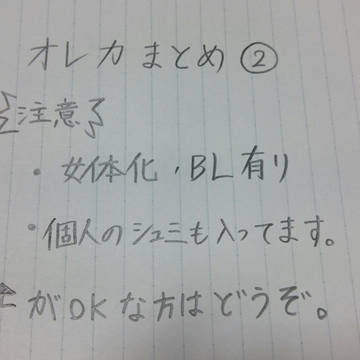 オレカまとめ②
{注意}
・女体化・BL有り
・個人のシュミも入ってます。
がOKな方はどうぞ。